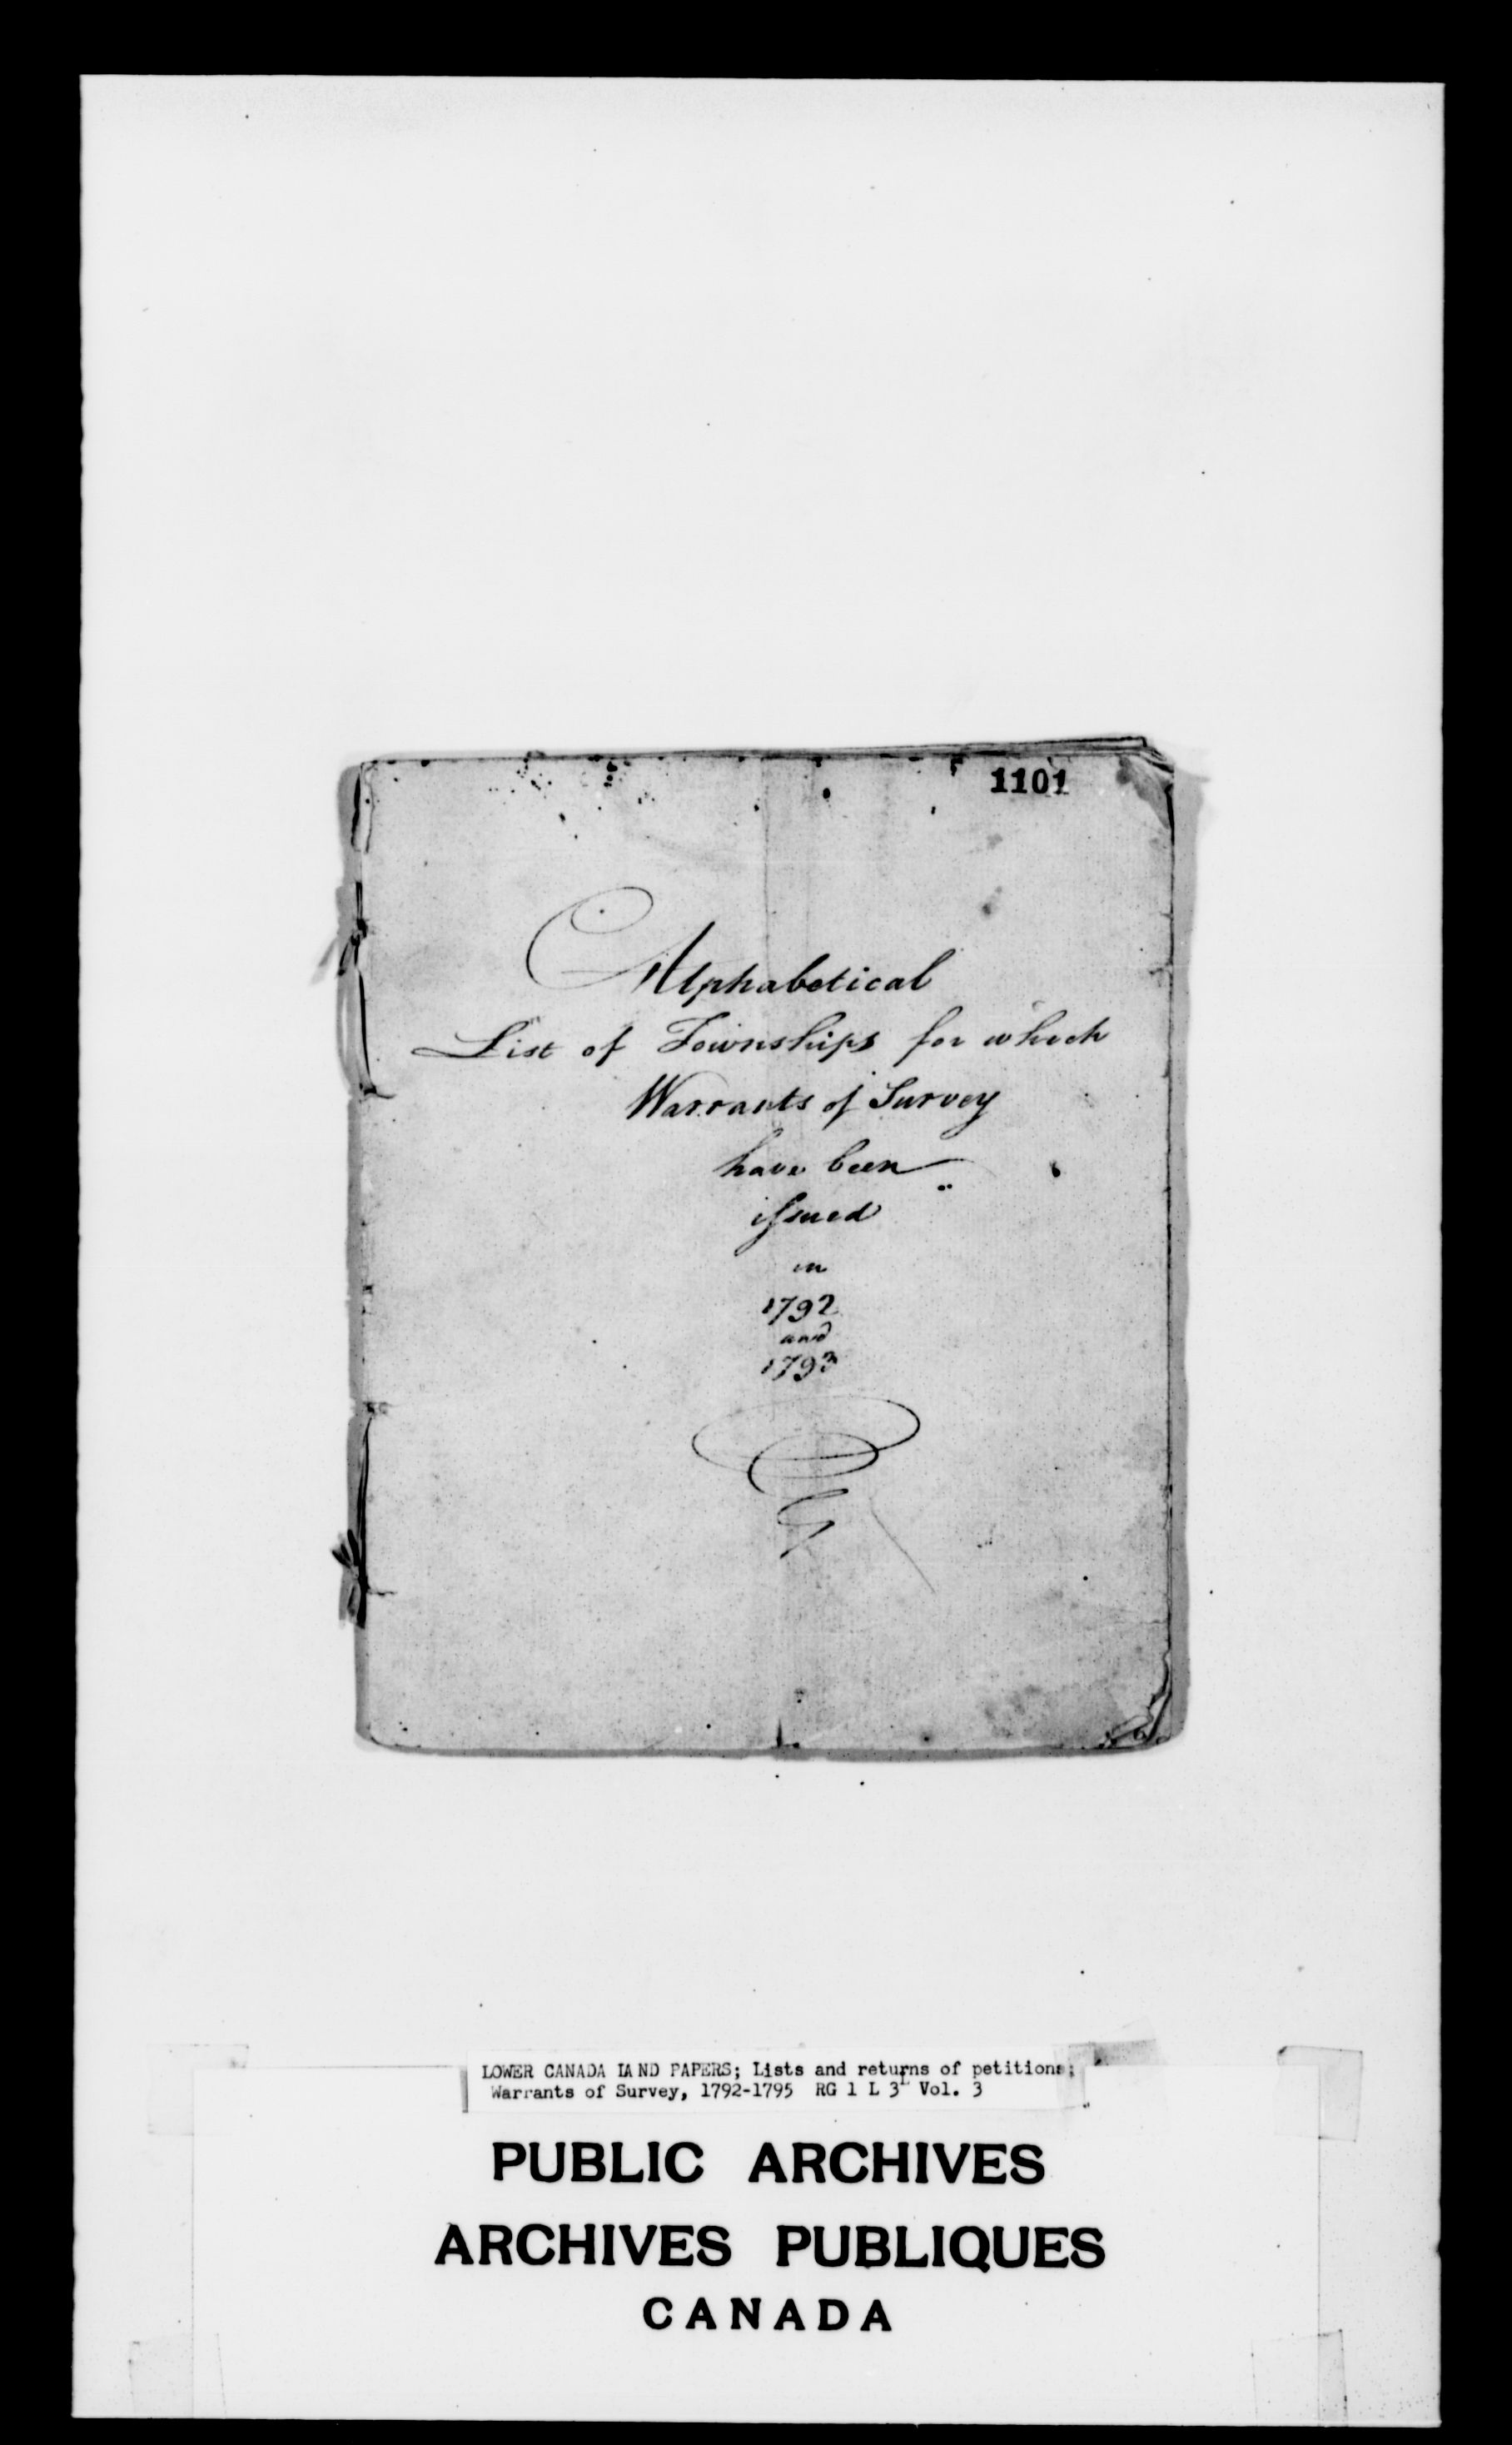 1101
Alphabetical
List of Townships for which
Warrants of Survey
have been
issued
in
1792
and
1793
LOWER CANADA LAND PAPERS; Lists and returns of petitions;
Warrants of Survey, 1792-1795 RG 1 L 3L Vol. 3
PUBLIC ARCHIVES
ARCHIVES PUBLIQUES
CANADA